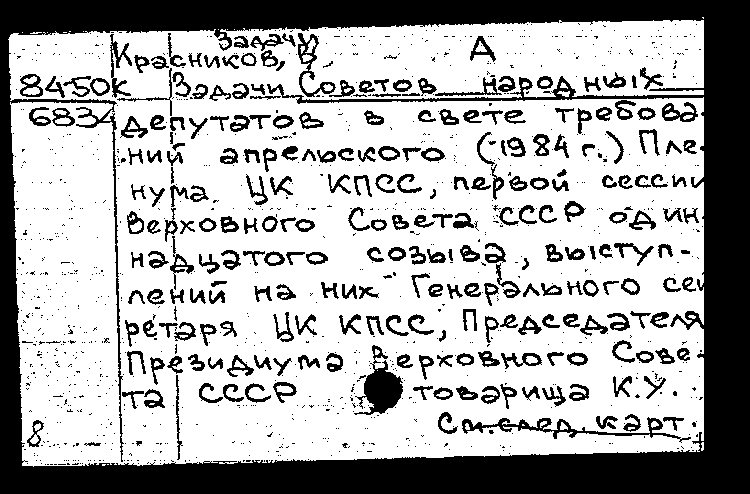 Задачи
Красников, В. А
8450к Задачи Советов народных
6834 депутатов в свете требова-
ний апрельского (1984 г.) Пле-
нума ЦК КПСС, первой сессии
Верховного Совета СССР один-
надцатого созыва, выступ-
лений на них Генерального сек
ретаря ЦК КПСС, Председателя
Президиума Верховного Сове-
та СССР товарища К.У.
См. след. карт.
8